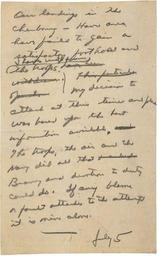 Our landings in the
Cherbourg - Havre area
have failed to gain a
satisfactory foothold and
the troops
have been
withdrawn
My decision to
attack at this time and place
was based upon the best
information available
The troops, the air and the
Navy did all that
Bravery and devotion to duty
could do. If any blame
or fault attaches to the attempt
it is mine alone.
July 5